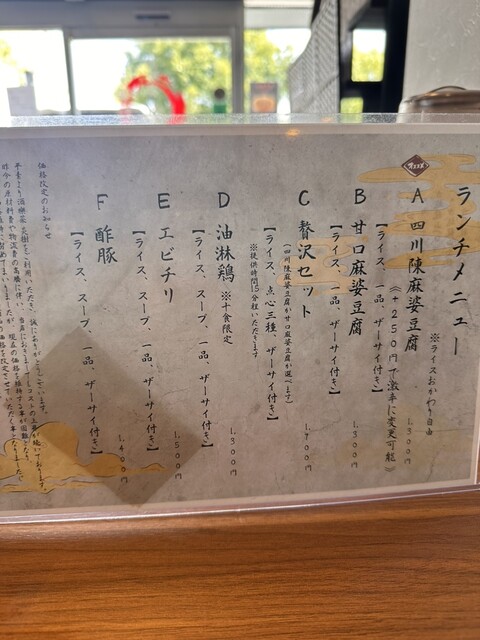 ランチメニュー
※ライスおかわり自由
A 四川陳麻婆豆腐
《+250円で激辛に変更可能》
1,300円
【ライス、一品、ザーサイ付き】
B 甘口麻婆豆腐
1,300円
【ライス、一品、ザーサイ付き】
C 贅沢セット
1,900円
(四川陳麻婆豆腐か甘口麻婆豆腐が選べます)
【ライス、点心三種、ザーサイ付き】
※提供時間15分程いただきます
D 油淋鶏 ※十食限定
1,300円
【ライス、スープ、一品、ザーサイ付き】
E エビチリ
1,500円
【ライス、スープ、一品、ザーサイ付き】
F 酢豚
1,400円
【ライス、スープ、一品、ザーサイ付き】
価格改定のお知らせ